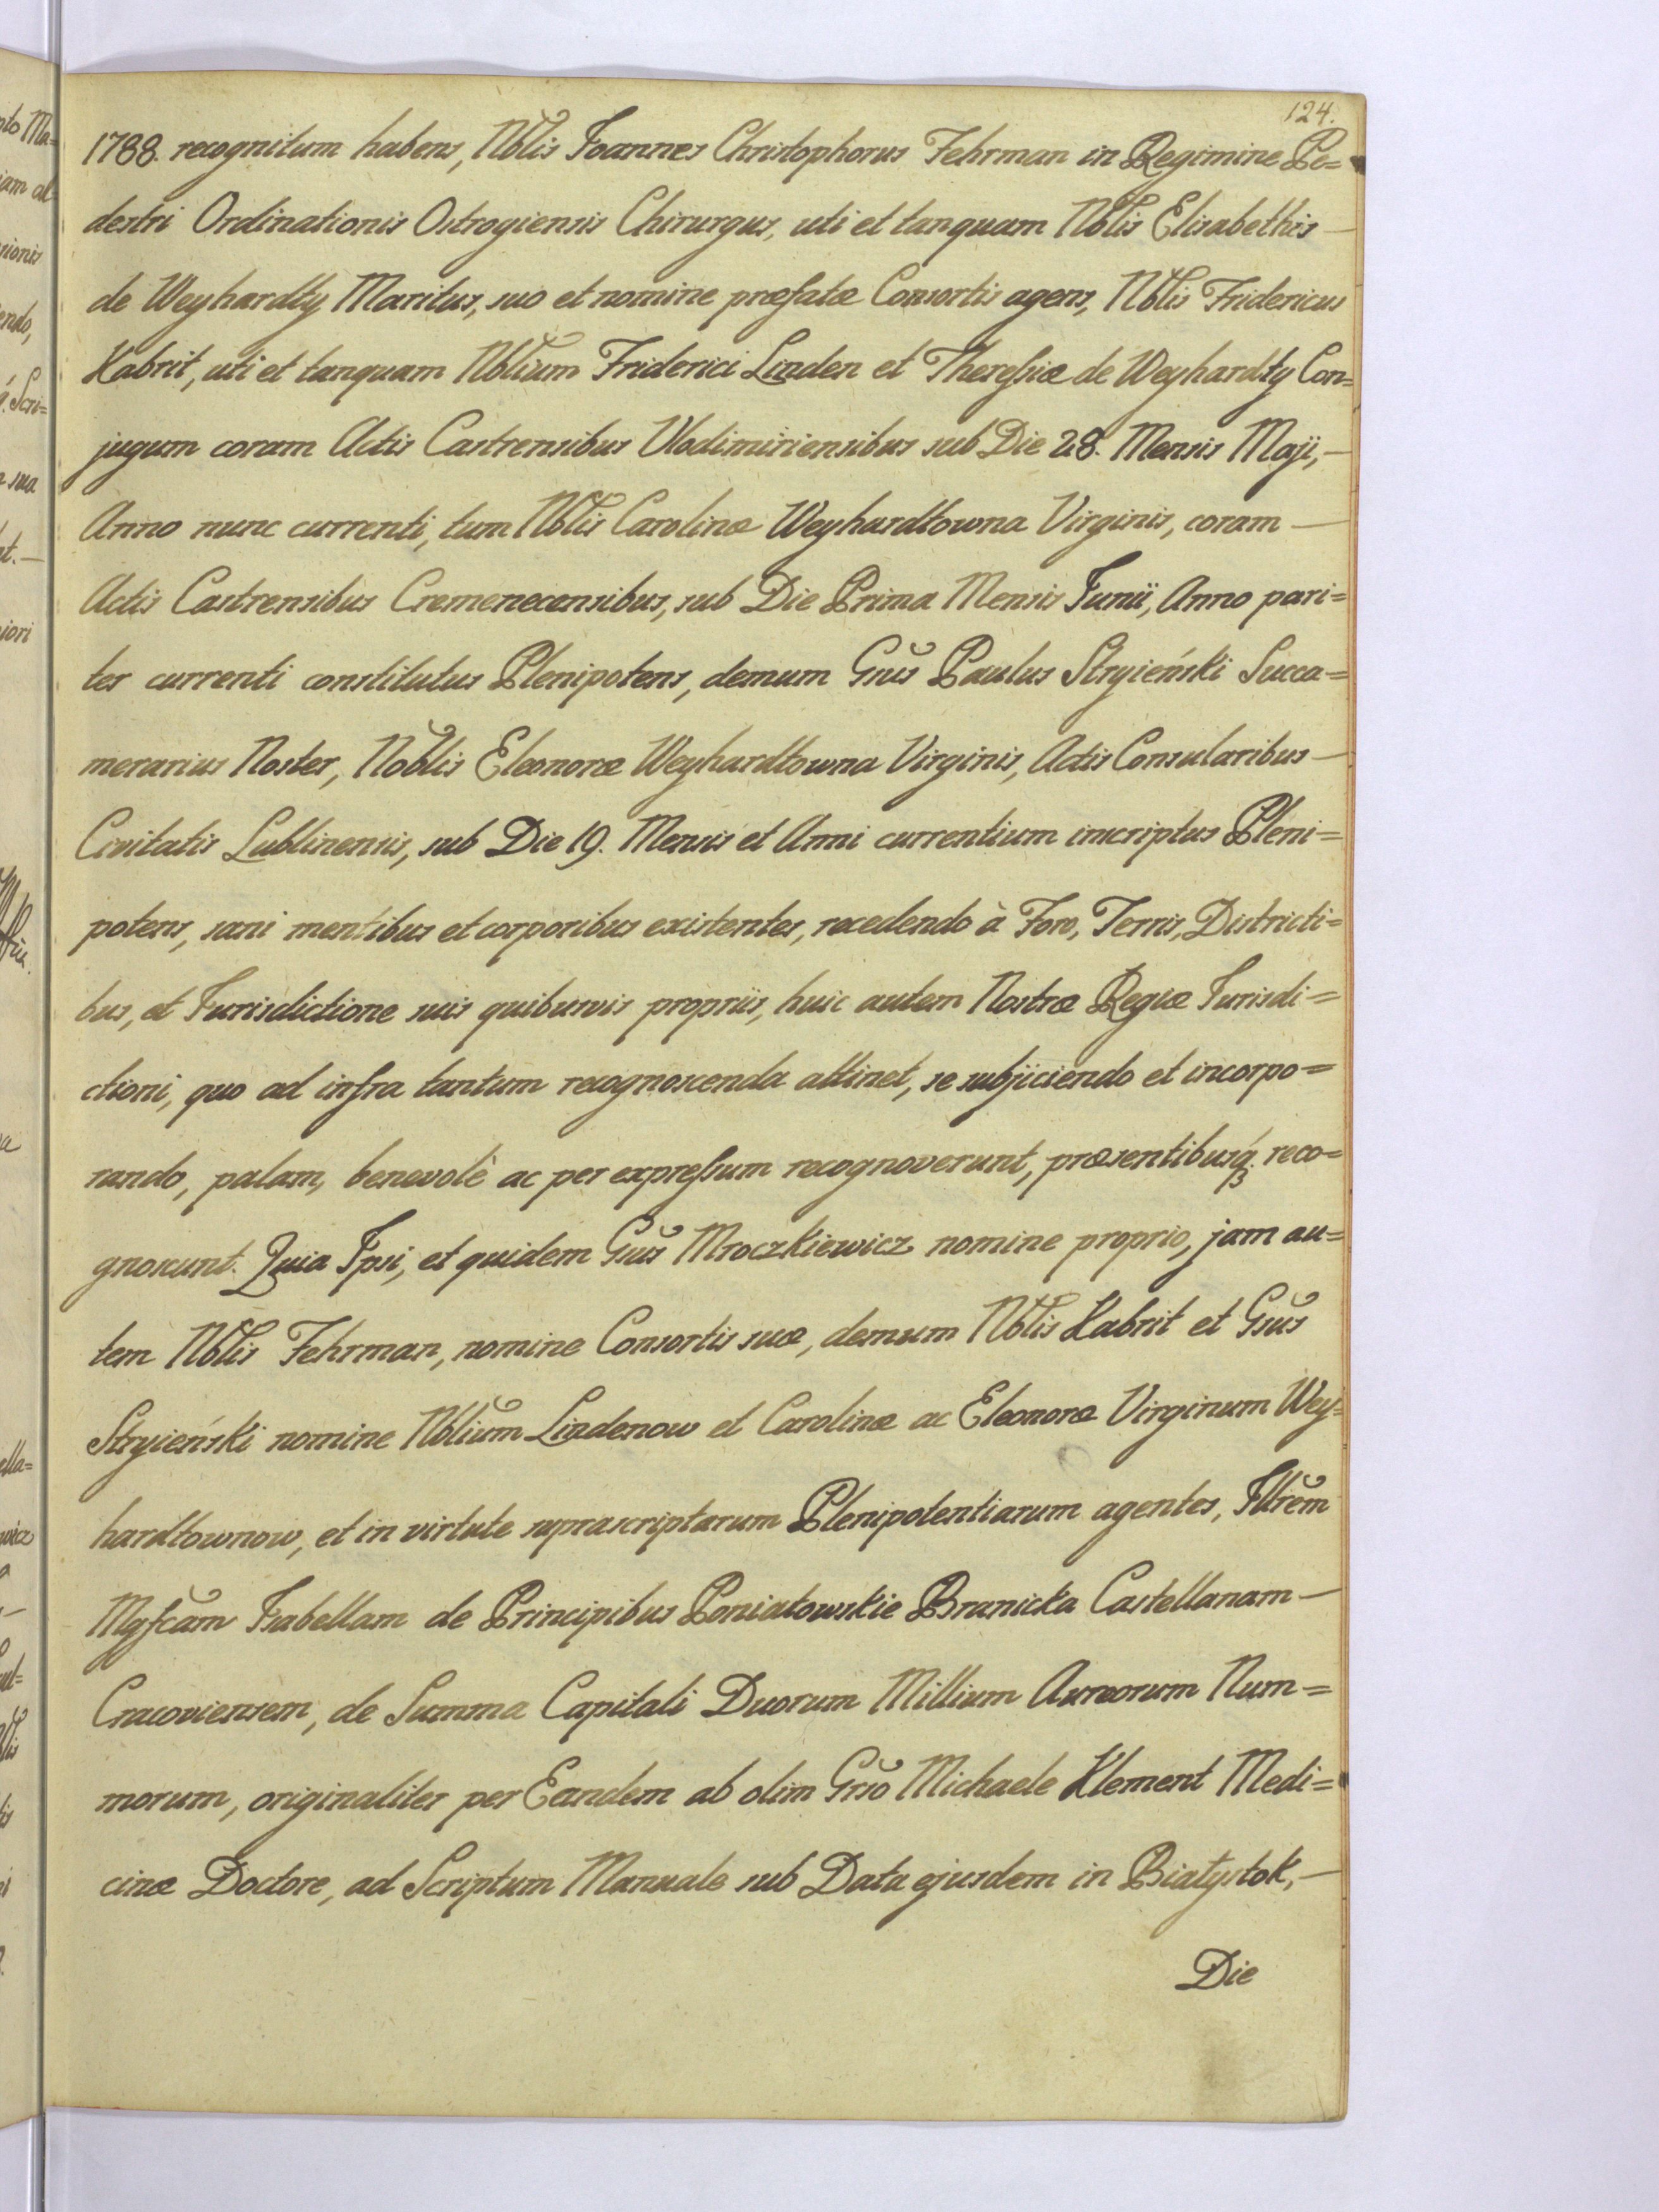 124.
1788. recognitum habens, Nblis Joannes Christophorus Fehrman in Regimine Pe=
destri Ordinationis Ostrogiensis Chirurgus, uti et tanquam Nblis Elisabethis —
de Weyhardty Maritus, suo et nomine præfatæ Consortis agens, Nblis Fridericus
Kabrit, uti et tanquam Nblium Friderici Linden et Theressiæ de Weyhardty Con=
jugum coram Actis Castrensibus Vlodimiriensibus sub Die 28. Mensis Maji, —
Anno nunc currenti, tum Nblis Carolinæ Weyhardtowna Virginis, coram —
Actis Castrensibus Cremenecensibus, sub Die Prima Mensis Junii, Anno pari=
ter currenti constitutus Plenipotens, demum Gsus Paulus Stryieński Succa=
merarius Noster, Noblis Eleonoræ Weyhardtowna Virginis, Actis Consularibus —
Civitatis Lublinensis, sub Die 19. Mensis et Anni currentium inscriptus Pleni=
potens, sani mentibus et corporibus existentes, recedendo à Foro, Terris, Districti=
bus, et Jurisdictione suis quibusvis propriis, huic autem Nostræ Regiæ Jurisdi=
ctioni, quo ad infra tantum recognoscenda attinet, se subjiciendo et incorpo=
rando, palam, benevolè ac per expressum recognoverunt, præsentibusq́ reco=
gnoscunt. Quia Ipsi, et quidem Gsus Mroczkiewicz nomine proprio, jam au=
tem Nblis Fehrman, nomine Consortis suæ, demum Nblis Kabrit et Gsus
Stryieński nomine Nblium Lindenow et Carolinæ ac Eleonoræ Virginum Wey=
hardtownow, et in virtute suprascriptarum Plenipotentiarum agentes, Illrem
Mgfcam Isabellam de Principibus Poniatowskie Branicka Castellanam —
Cracoviensem, de Summa Capitali Duorum Millium Aureorum Num=
morum, originaliter per Eandem ab olim Gsso Michaele Klement Medi=
cinæ Doctore, ad Scriptum Manuale sub Data ejusdem in Białystok, —
Die